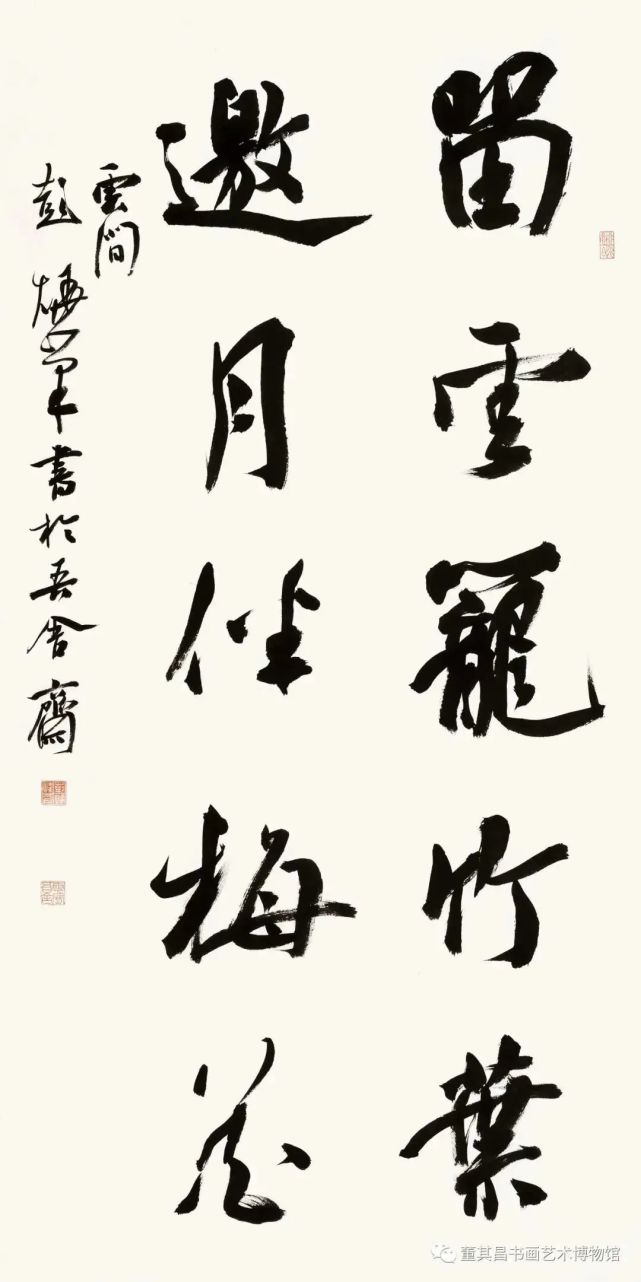 留雲籠竹葉
邀月伴梅花
雲間
彭烨峯書於吾舍齋
董其昌书画艺术博物馆